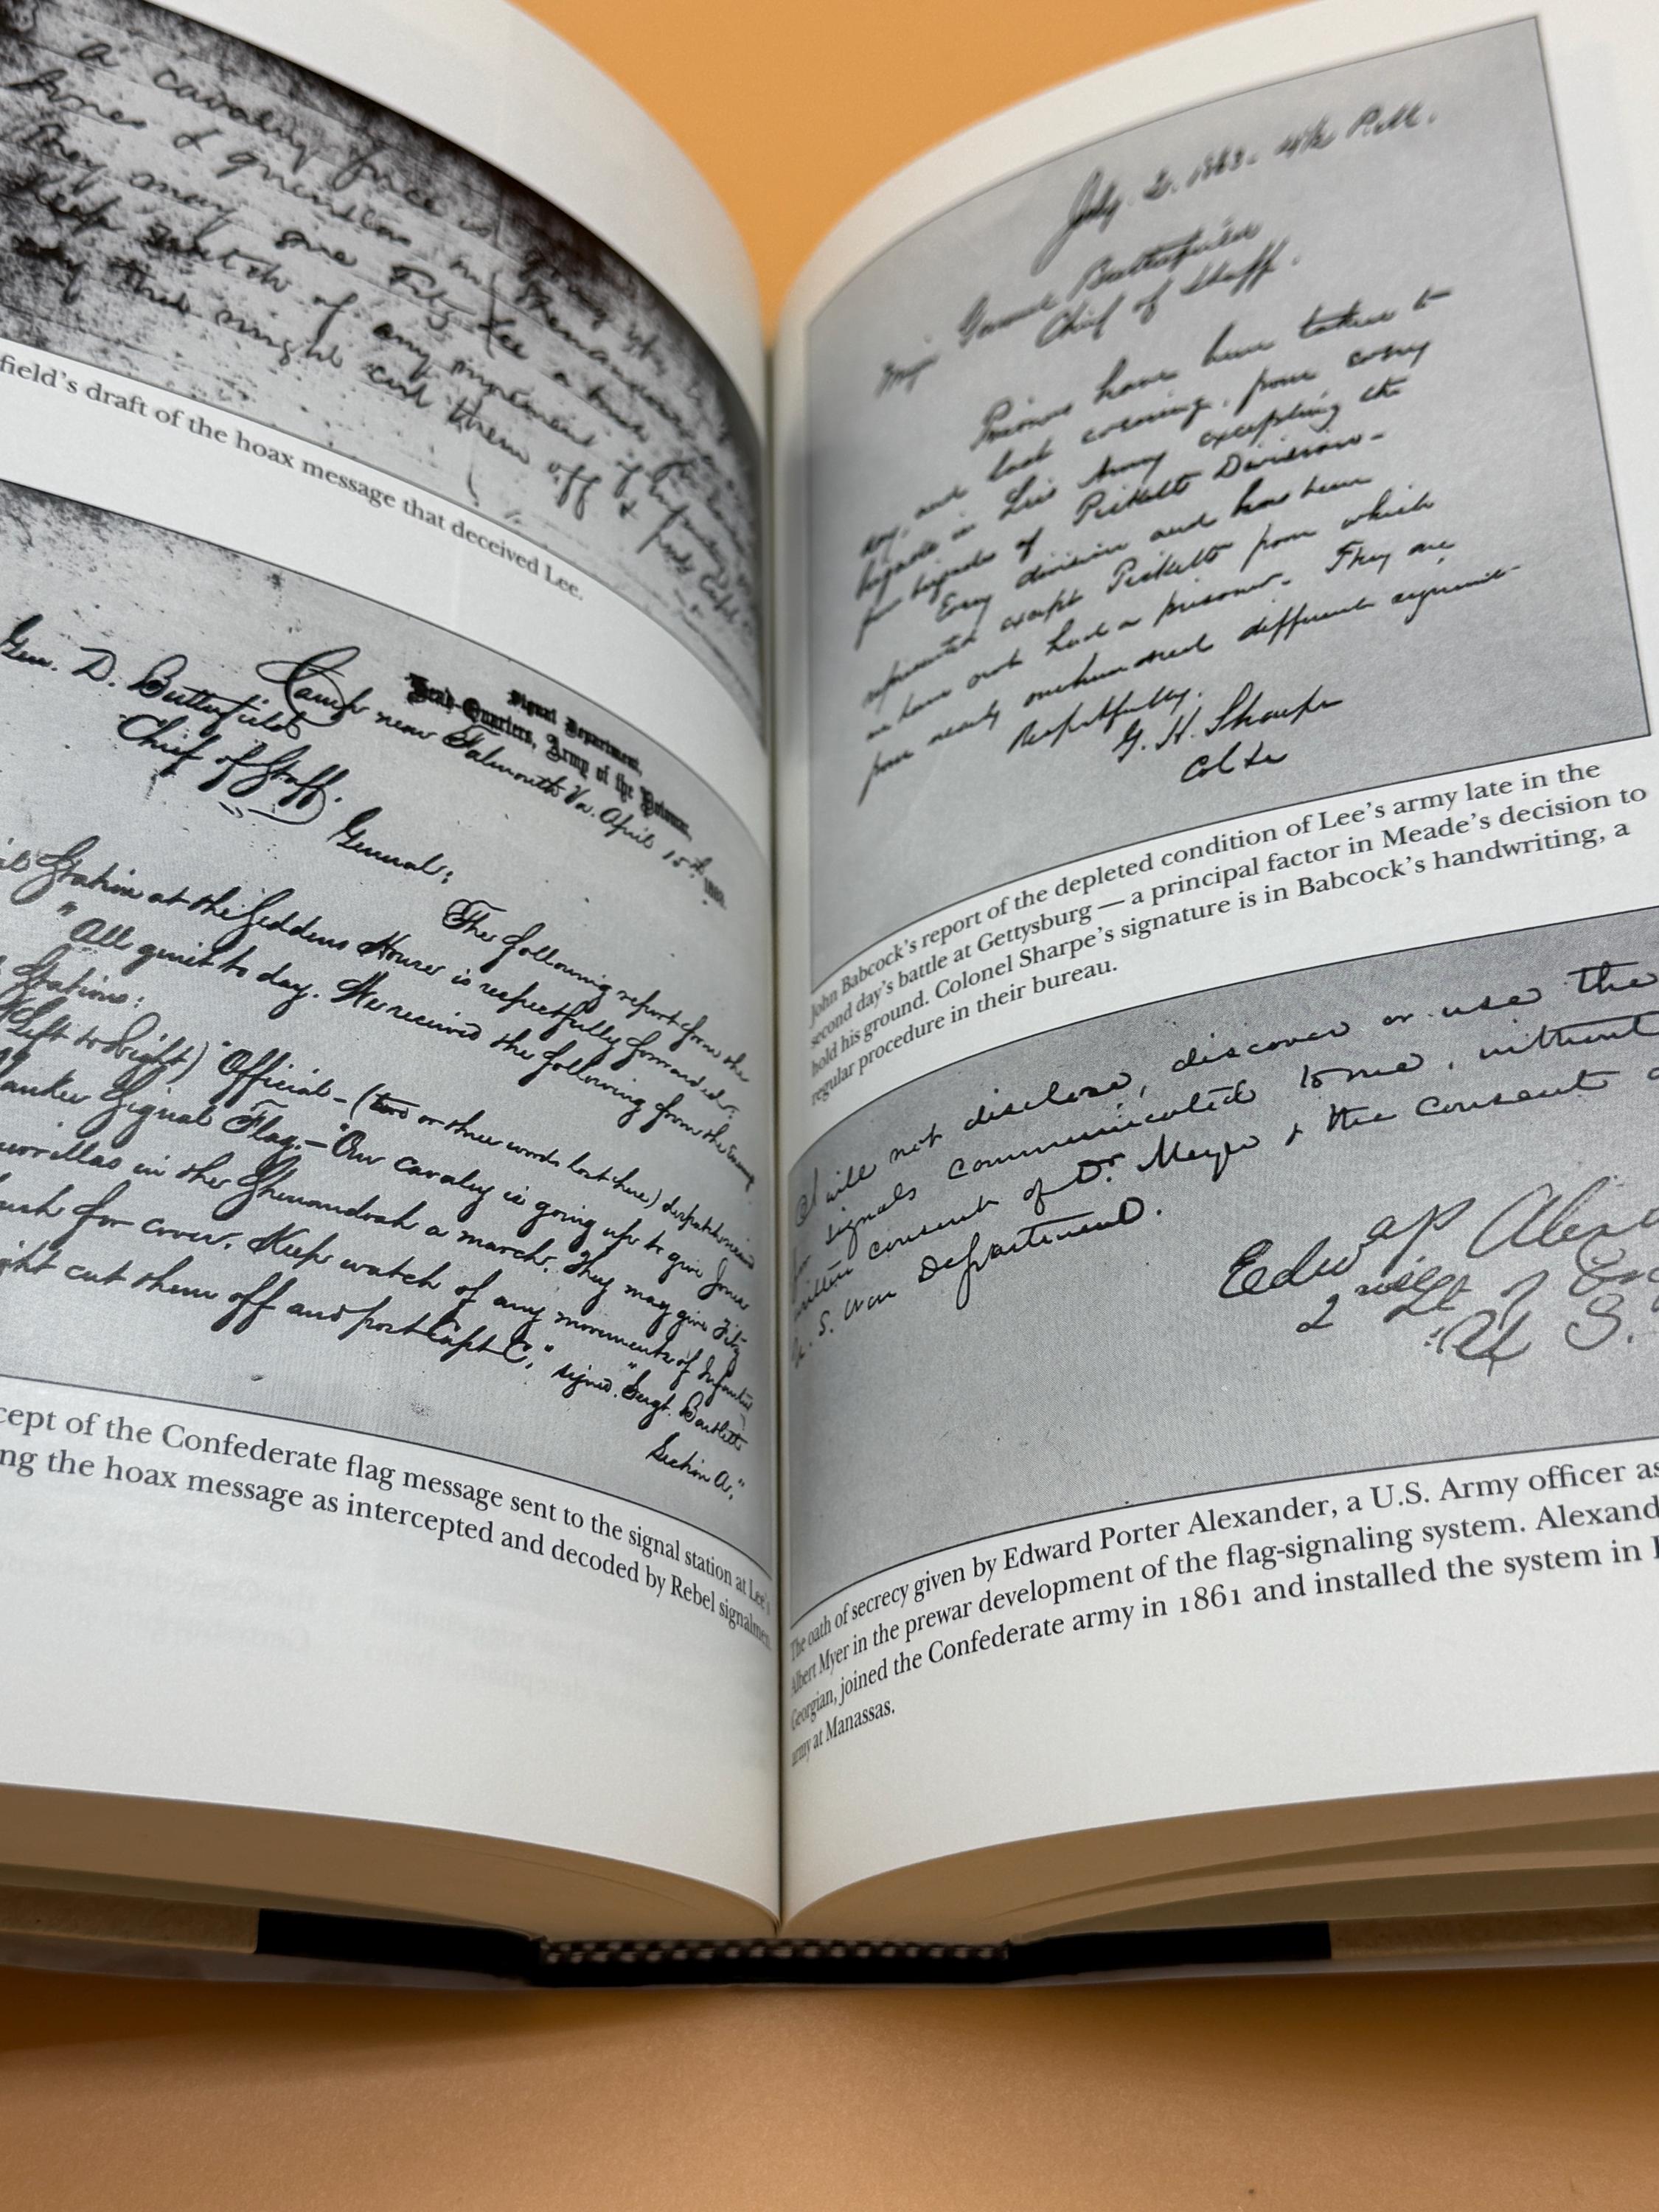 a cavalry force is going up
Jones & guerillas in Shenandoah
They may give Fitz Lee a brush
Keep watch of any movement of Infantry
might cut them off &
field's draft of the hoax message that deceived Lee.
Signal Department,
Head-Quarters, Army of the Potomac,
Camp near Falmouth Va. April 15th, 1863.
Gen. D. Butterfield
Chief of Staff.
General;
The following report from the
Station at the Seddens House is respectfully forwarded;
"All quiet to day. We received the following from the Enemy
Stations:
(Left to Right) "Official – (two or three words lost here) dispatch
Yankee Signal Flag. – "Our cavalry is going up to give Jones
in the Shenandoah a march. They may give Fitz
for cover. Keep watch of any movements of Infantry
cut them off and post Capt C," signed. "Sergt. Bartlett
Section A,"
cept of the Confederate flag message sent to the signal station at Lee's
ng the hoax message as intercepted and decoded by Rebel signalmen.
July 2. 1863. 4½ P.M.
Genral Butterfield
Chief of Staff.
have been taken to
day, and last evening, from every
brigade in Lee's Army excepting the
four brigades of Picketts Division –
Every division and has been
represented except Picketts from which
we have not had a prisoner. They are
from nearly one hundred different regiments
Respectfully.
G. H. Sharpe
Col &c
John Babcock's report of the depleted condition of Lee's army late in the
second day's battle at Gettysburg — a principal factor in Meade's decision to
hold his ground. Colonel Sharpe's signature is in Babcock's handwriting, a
regular procedure in their bureau.
I will not disclose, discover or use the
signals communicated to me, without
written consent of Dr. Myer & the consent
U. S. War Department.
Edw
2 Lt
U S.
The oath of secrecy given by Edward Porter Alexander, a U.S. Army officer as
Albert Myer in the prewar development of the flag-signaling system. Alexand
Georgian, joined the Confederate army in 1861 and installed the system in
army at Manassas.